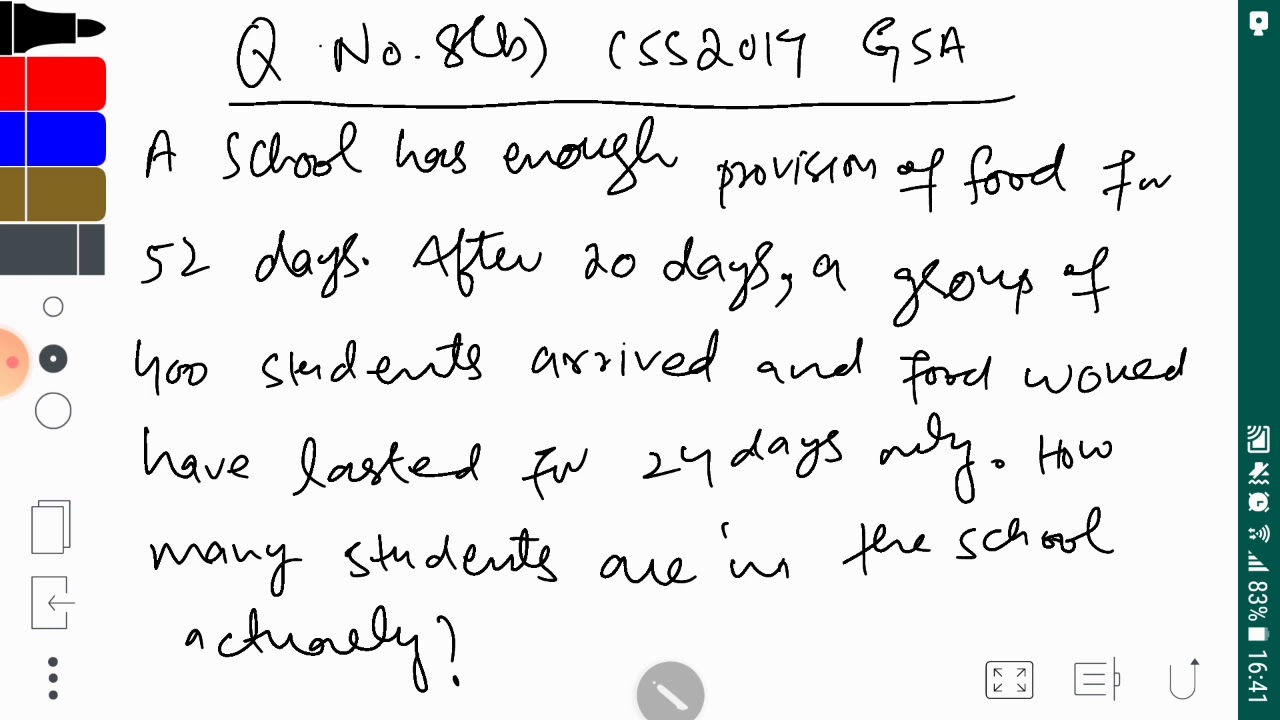 Q No. 8(b) CSS2019 GSA
A School has enough provision of food for
52 days. After 20 days, a group of
400 students arrived and food would
have lasted for 24 days only. How
many students are in the school
actually?
83%
16:41